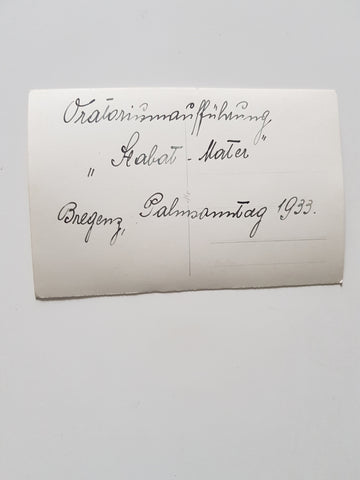 Oratoriumaufführung,
„Stabat-Mater"
Bregenz, Palmsonntag 1933.